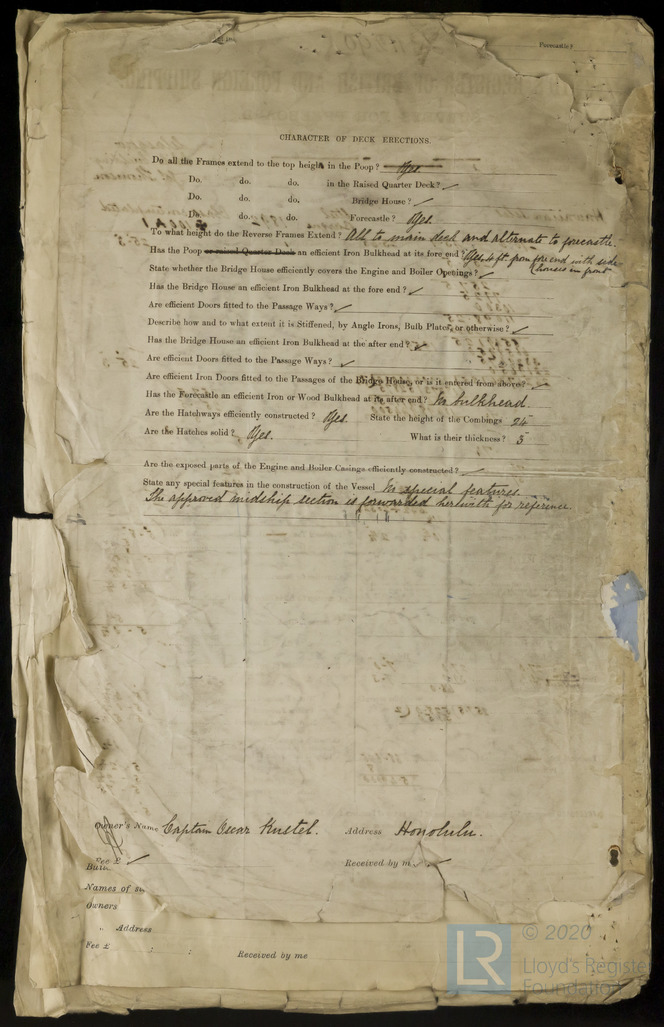 Forecastle?
CHARACTER OF DECK ERECTIONS.
Do all the Frames extend to the top height in the Poop? Yes
Do. do. do. in the Raised Quarter Deck? ✓
Do. do. do. Bridge House? ✓
Do. do. do. Forecastle? Yes.
To what height do the Reverse Frames Extend? All to main deck and alternate to forecastle.
Has the Poop or raised Quarter Deck an efficient Iron Bulkhead at its fore end? Yes, 4 ft from fore end with side
houses in front
State whether the Bridge House efficiently covers the Engine and Boiler Openings? ✓
Has the Bridge House an efficient Iron Bulkhead at the fore end? ✓
Are efficient Doors fitted to the Passage Ways? ✓
Describe how and to what extent it is Stiffened, by Angle Irons, Bulb Plates, or otherwise? ✓
Has the Bridge House an efficient Iron Bulkhead at the after end? ✓
Are efficient Doors fitted to the Passage Ways? ✓
Are efficient Iron Doors fitted to the Passages of the Bridge House, or is it entered from above? ✓
Has the Forecastle an efficient Iron or Wood Bulkhead at its after end? No bulkhead.
Are the Hatchways efficiently constructed? Yes. State the height of the Combings 24"
Are the Hatches solid? Yes. What is their thickness? 3
Are the exposed parts of the Engine and Boiler Casings efficiently constructed? ✓
State any special features in the construction of the Vessel No special features.
The approved midship section is forwarded herewith for reference.
Owner's Name Captain Oscar Kustel. Address Honolulu.
Fee £ ✓ Received by m ✓
Names of
Owners
" Address
Fee £ : : Received by me
LR © 2020
Lloyd's Registe
Foundation